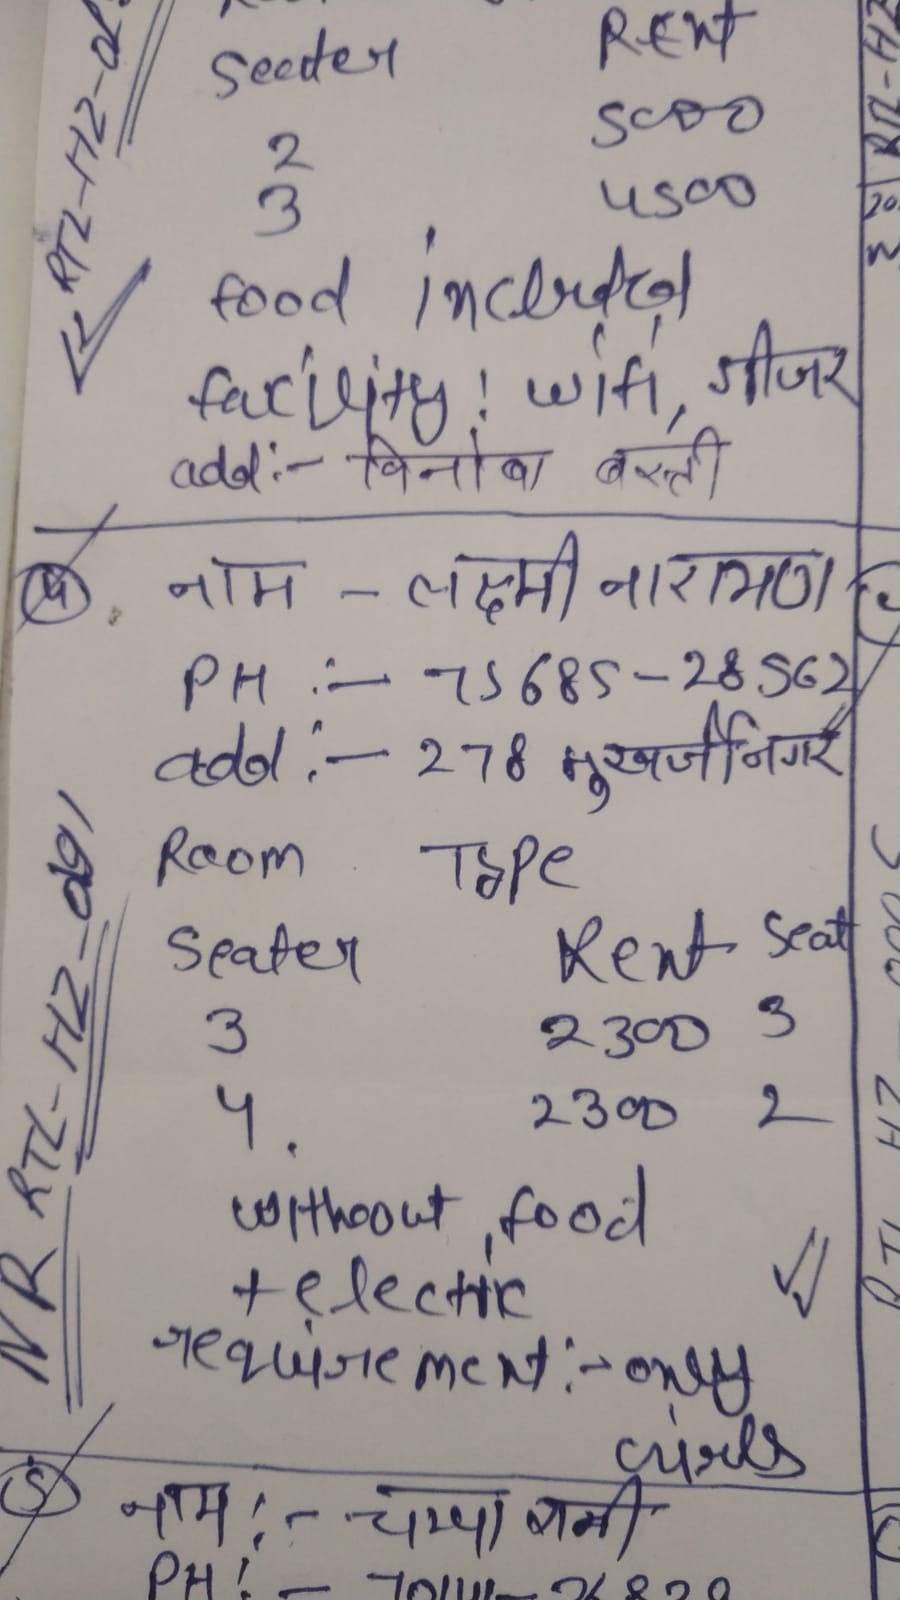 Seeter Rent
2 5000
3 4500
food included
facility: wifi, गीजर
add:- विनोबा बस्ती
RTL-HZ-
4
नाम - लक्ष्मी नारायण
PH :- 75685-28562
add:- 278 मुखर्जीनगर
Room Type
Seater Rent Seat
3 2300 3
4. 2300 2
without food
+ electric
requirement:- only
girls
NR RTL-HZ-091
5
नाम:- चम्पा
PH:-